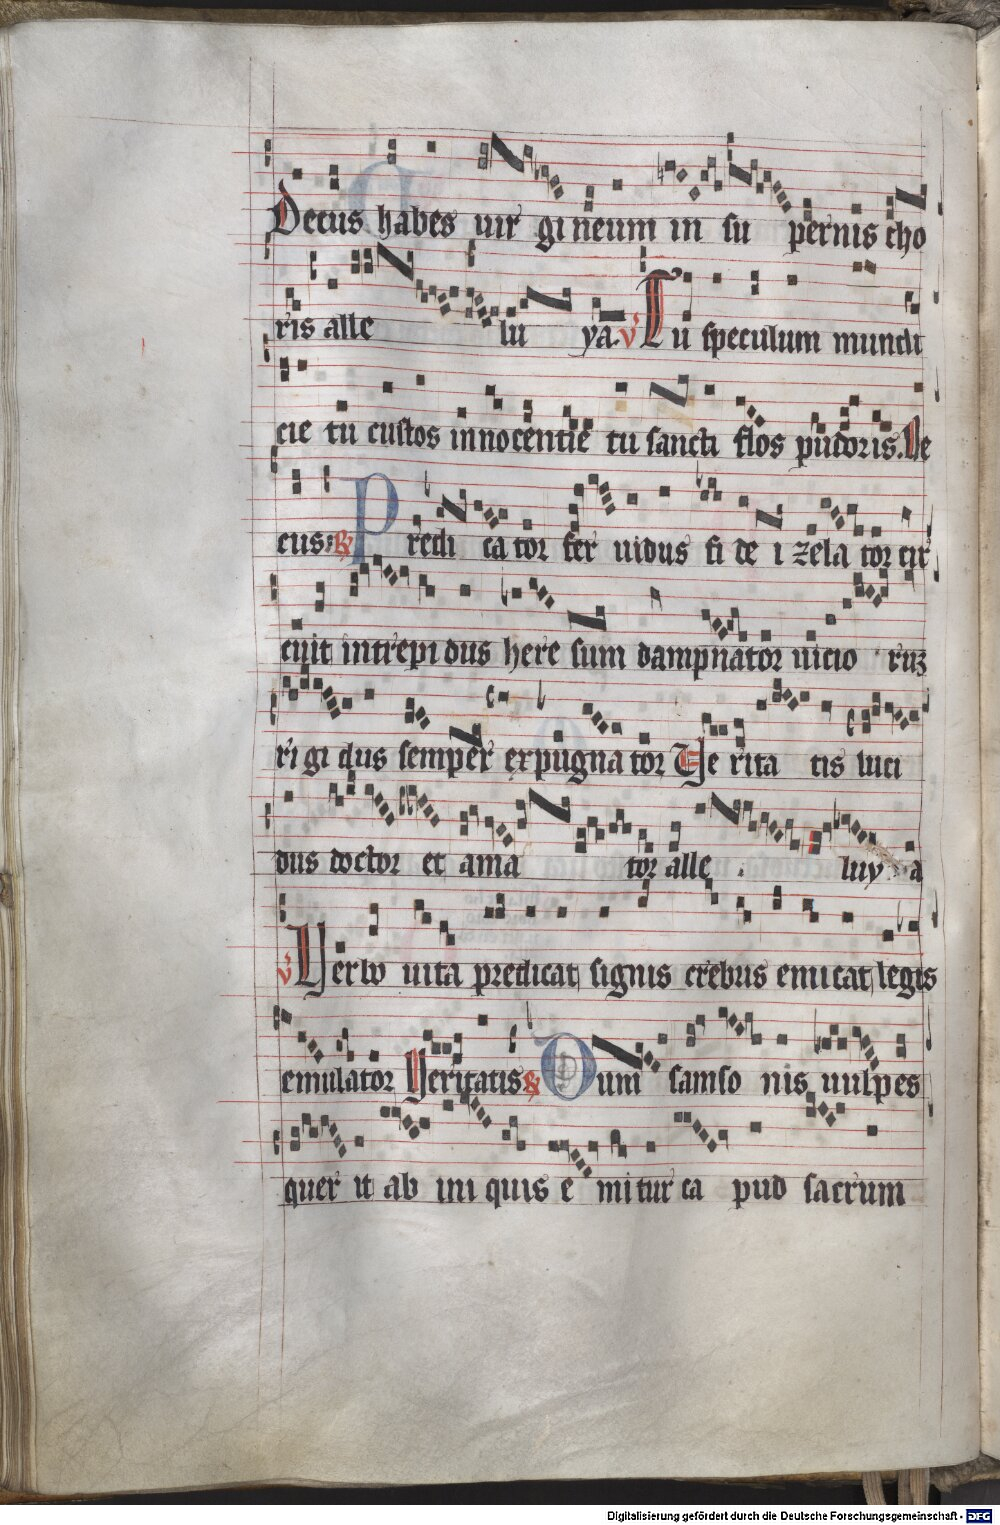 Decus habes uir gineum in su pernis cho
ris alle lu ya. v Tu speculum mundi
cie tu custos innocentie tu sancti flos pudoris. De
cus: R Predi ca tor fer uidus fi de i zela tor cir
cuit intrepi dus here sum dampnator uicio ruz
ri gi dus semper expugna tor Ve rita tis luci
dus doctor et ama tor alle luy a
v Verbo uita predicat signis crebris emicat legis
emulator Veritatis R Dum samso nis uulpes
quer it ab ini quis e mitur ca pud sacrum
Digitalisierung gefördert durch die Deutsche Forschungsgemeinschaft - DFG